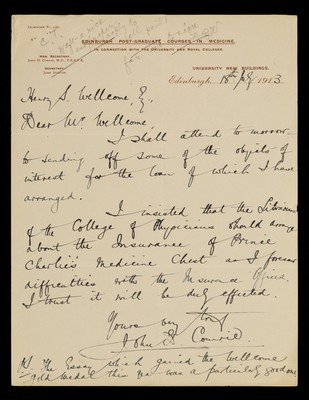 EDINBURGH POST-GRADUATE COURSES IN MEDICINE,
IN CONNECTION WITH THE UNIVERSITY AND ROYAL COLLEGES.
UNIVERSITY NEW BUILDINGS,
Edinburgh 18th July 1913.
Henry S. Wellcome, E.,
Dear Mr Wellcome
I shall attend to morrow
to sending off some of the objects of
interest for the loan of which I have
arranged.
I insisted that the Librarian
of the College of Physicians should arrange
about the Insurance of Prince
Charlie's Medicine Chest as I foresaw
difficulties with the Insurance Office.
I trust it will be duly effected.
Yours very
John D Comrie.
P.S. The Essay which gained the Wellcome
Gold medal this year was a particularly good one